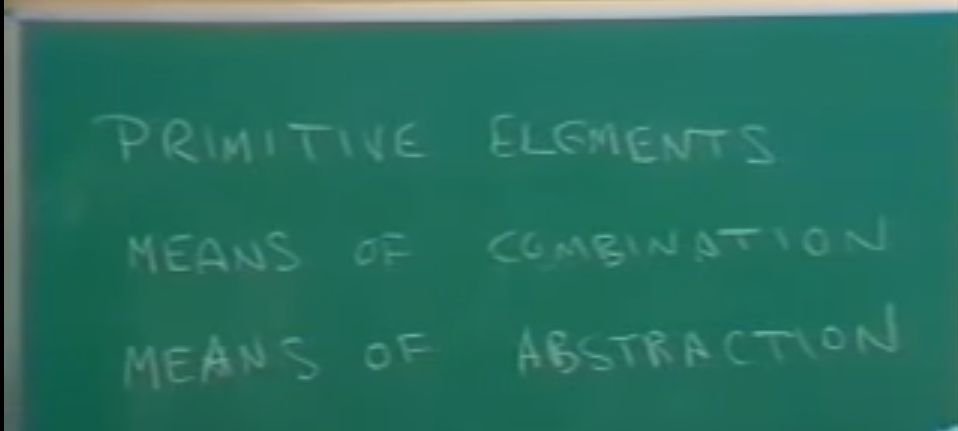 PRIMITIVE ELEMENTS
MEANS OF COMBINATION
MEANS OF ABSTRACTION